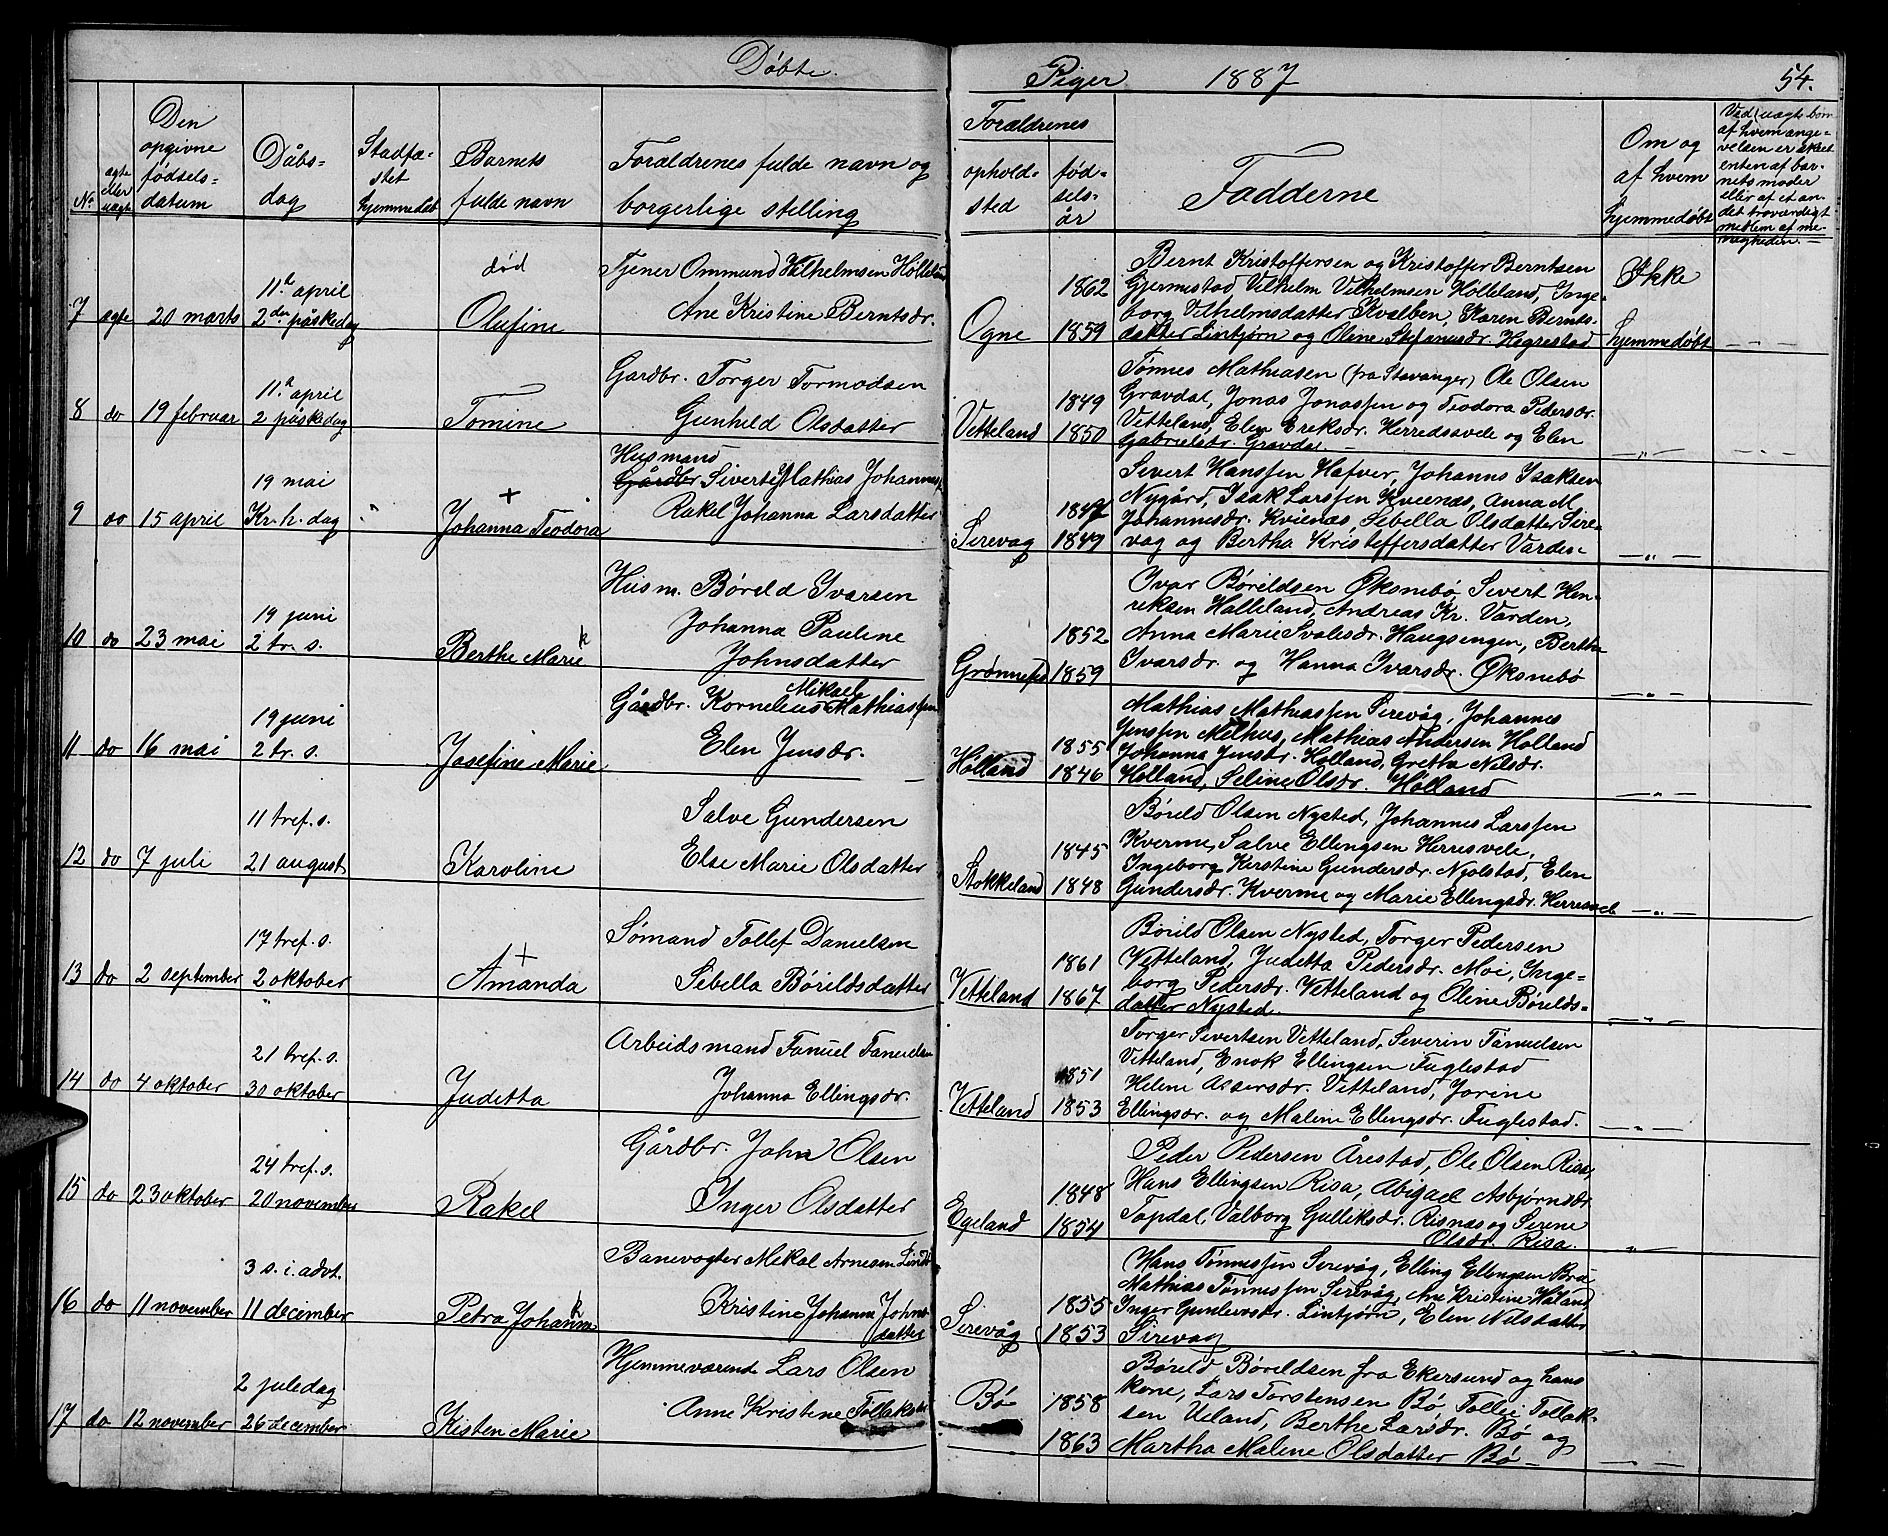 Døbte.
Piger 1887 54.
No
ægte eller uægte
Den opgivne fødsels= datum
Dåbs- dag
Stadfæ- stet hjemmedåb
Barnets fulde navn
Forældrenes fulde navn og borgerlige stilling
Forældrenes
opholdsted
fødselsår
Fadderne
Om og af hvem hjemmedøbt
Ved uægte børn af hvem angivelsen er skeet enten af barnets moder eller af et andet troværdigt medlem af menigheden.
7 ægte 20 marts
11te april
2den påskedag
død
Olufine
Tjener Ommund Vilhelmsen Hølleland
Ane Kristine Berntsdr.
Ogne
1862
1859
Bernt Kristoffersen og Kristoffer Berntsen
Gjermestad Vilhelm Vilhelmsen Hølleland, Inge-
borg Vilhelmsdatter Kvalben, Karen Bernts-
datter Lintjørn og Oline Stefanusdr. Hegrestad
Ikke
hjemmedøbt
8 do 19 februar
11te april
2 påskedag
Tomine
Gardbr. Torger Tormodsen
Gunhild Olsdatter
Vetteland
1849
1850
Tønnes Mathiasen (fra Stavanger) Ole Olsen
Gravdal, Jonas Jonassen og Teodora Pedersdr.
Vetteland, Elen Ereksdr. Herredsvele og Elen
Gabrielsdr. Gravdal
9 do 15 april
19 mai
Kr. h. dag
+
Johanna Teodora
Husmand
Gårdbr Sivert Mathias Johannes
Rakel Johanna Larsdatter
Sirevag
1847
1849
Sivert Hanssen Hafver, Johanns Isaksen
Nygård, Isak Larssen Kvienæs, Anna M.
Johannesdr. Kvienæs, Sibella Olsdatter Sire-
vag og Bertha Kristoffersdatter Varden-
10 do 23 mai
19 juni
2 tr. s.
Berthe Marie
Husm. Børild Ivarsen
Johanna Pauline
Johnsdatter
1852
1859
Ivar Børildsen Øksnebø Sivert Hen-
reksen Halleland, Andreas Kr. Varden,
Anna Marie Svalesdr. Haugsengen, Bertha
Ivarsdr. og Hanna Ivarsdr. Øksnebø
11 do 16 mai
19 juni
2 tr. s.
Josefine Marie
Gårdbr. Kornelius Mikaely Mathiassen
Elen Jensdr.
Holland
1855
1846
Mathias Mathiassen Sirevåg, Johannes
Jenssen Mælhus, Mathias Andersen Holland
Johanna Jensdr. Holland, Gretha Nilsdr.
Holland, Seline Olsdr. Holland
12 do 7 juli
11 tref. s.
21 august
Karoline
Salve Gundersen
Else Marie Olsdatter
Stokkeland
1845
1848
Børild Olsen Nysted, Johannes Larssen
Kverme, Salve Ellingsen Herresvele,
Ingeborg Kirstine Gundersdr. Nyolstad, Elen
Gundersdr. Kverme og Marie Ellingsdr. Herresvele
13 do 2 september
17 tref. s.
2 oktober
+
Amanda
Sømand Tollef Danielsen
Sibella Børildsdatter
Vetteland
1861
1867
Børild Olsen Nysted, Torger Pedersen
Vetteland, Judetta Pedersdr. Moi, Inge-
borg Pedersdr. Vetteland og Oline Børilds-
datter Nysted.
14 do 4 oktober
21 tref. s.
30 oktober
Judetta
Arbeidsmand Fanuel Fanuelsen
Johanna Ellingsdr.
Vetteland
1851
1853
Torger Sivertsen Vetteland, Severin Fanuelsen
Vetteland, Enok Ellingsen Fuglestad
Helene Assersdr. Vetteland, Jorine
Ellingsdr. og Maline Ellingsdr. Fuglestad.
15 do 23 oktober
24 tref. s.
20 november
Rakel
Gårdbr. John Olsen
Inger Olsdatter
Egeland
1848
1854
Peder Pedersen Årestad, Ole Olsen Risa,
Hans Ellingsen Risa, Abigael Asbjørnsdr.
Topdal, Valborg Gulliksdr. Risnæs og Serine
Olsdr. Risa.
16 do 11 november
3 s. i. advt.
11 december
Petra Johanna
Banevogter Mikal Arnesen
Kristine Johanna Johns-
datter
Sirevåg
1855
1853
Hans Tønnessen Sirevåg, Elling Ellingsen
Mathias Tønnessen Sirevåg, Ane Kristine
Inger Gunlevsdr. Lintjørn, Elen Nilsdatter
Sirevag
17 do 12 november
2 juledag
26 december
Kisten Marie
Hjemmeværende Lars Olsen
Anne Kristine Tollaksdr
Bø
1858
1863
Børild Børildsen fra Ekersund og hans
kone, Lars Torstensen Bø, Tollei Tollak-
sen Ueland, Berthe Larsdr. Bø og
Martha Malene Olsdatter Bø-